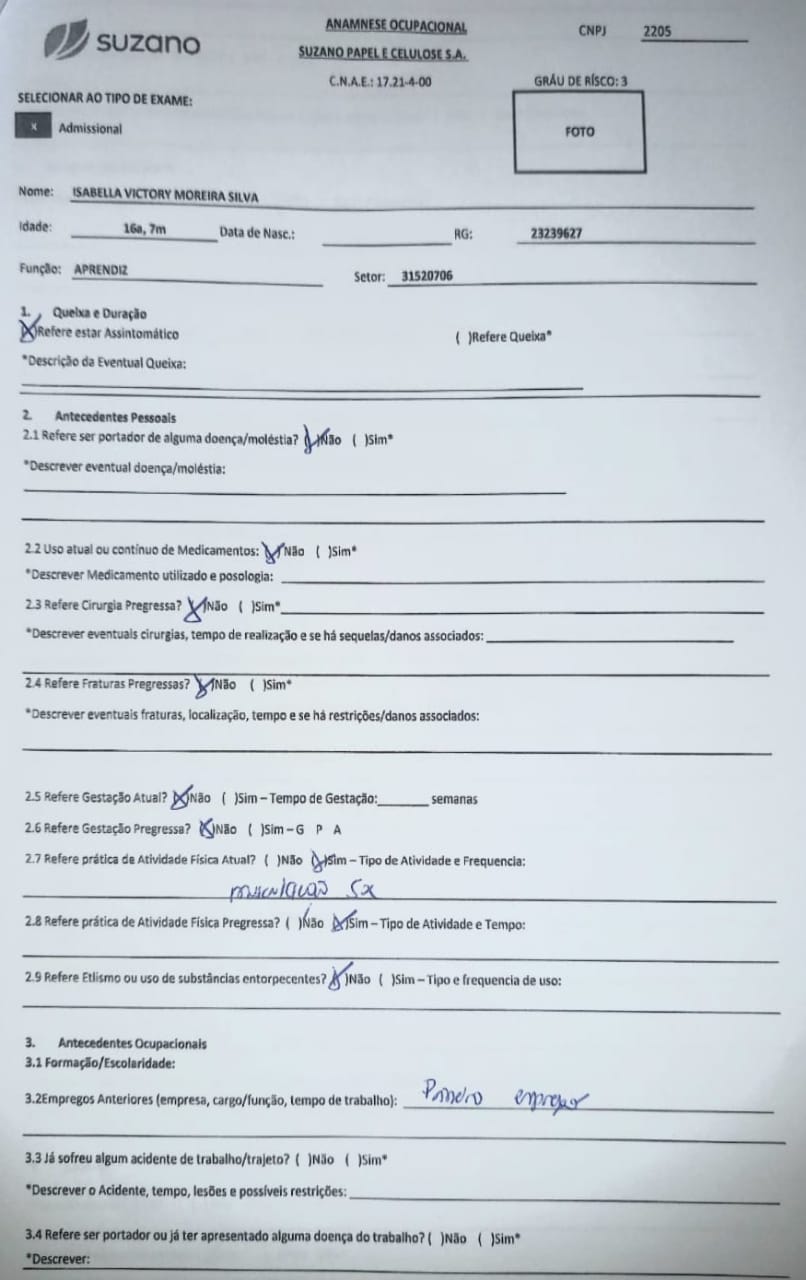 suzano
ANAMNESE OCUPACIONAL
SUZANO PAPEL E CELULOSE S.A.
C.N.A.E.: 17.21-4-00
CNPJ 2205
GRÁU DE RÍSCO: 3
SELECIONAR AO TIPO DE EXAME:
x Admissional
FOTO
Nome: ISABELLA VICTORY MOREIRA SILVA
Idade: 16a, 7m Data de Nasc.: RG: 23239627
Função: APRENDIZ Setor: 31520706
1. Queixa e Duração
(X)Refere estar Assintomático ( )Refere Queixa*
*Descrição da Eventual Queixa:
2. Antecedentes Pessoais
2.1 Refere ser portador de alguma doença/moléstia? (X)Não ( )Sim*
*Descrever eventual doença/moléstia:
2.2 Uso atual ou contínuo de Medicamentos: (X)Não ( )Sim*
*Descrever Medicamento utilizado e posologia:
2.3 Refere Cirurgia Pregressa? (X)Não ( )Sim*
*Descrever eventuais cirurgias, tempo de realização e se há sequelas/danos associados:
2.4 Refere Fraturas Pregressas? (X)Não ( )Sim*
*Descrever eventuais fraturas, localização, tempo e se há restrições/danos associados:
2.5 Refere Gestação Atual? (X)Não ( )Sim – Tempo de Gestação:______ semanas
2.6 Refere Gestação Pregressa? (X)Não ( )Sim – G P A
2.7 Refere prática de Atividade Física Atual? ( )Não (X)Sim – Tipo de Atividade e Frequencia:
musculação 5x
2.8 Refere prática de Atividade Física Pregressa? ( )Não (X)Sim – Tipo de Atividade e Tempo:
2.9 Refere Etlismo ou uso de substâncias entorpecentes? (X)Não ( )Sim – Tipo e frequencia de uso:
3. Antecedentes Ocupacionais
3.1 Formação/Escolaridade:
3.2Empregos Anteriores (empresa, cargo/função, tempo de trabalho): Primeiro emprego
3.3 Já sofreu algum acidente de trabalho/trajeto? ( )Não ( )Sim*
*Descrever o Acidente, tempo, lesões e possíveis restrições:
3.4 Refere ser portador ou já ter apresentado alguma doença do trabalho? ( )Não ( )Sim*
*Descrever: